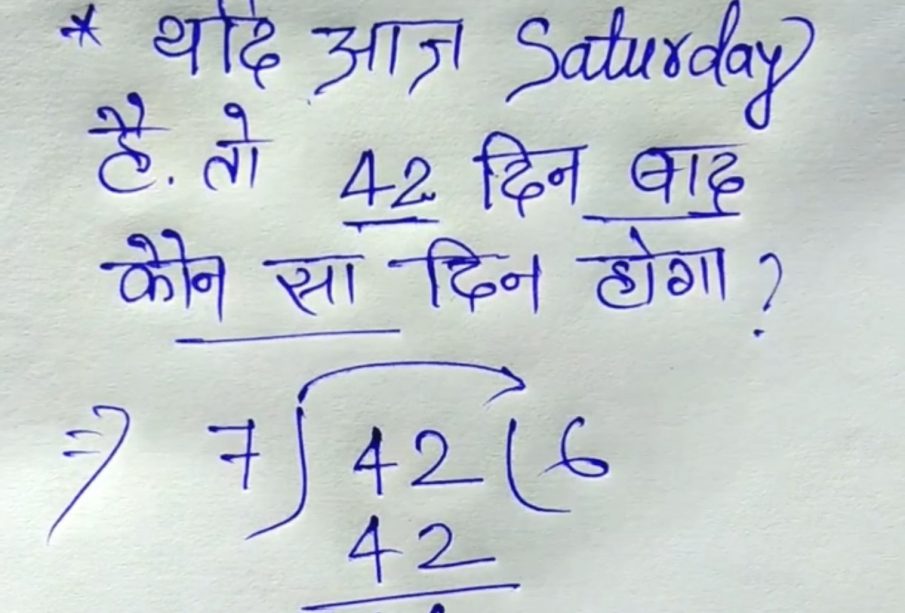 * यदि आज Saturday
है. तो 42 दिन बाद
कौन सा दिन होगा?
⇒ 7)42(6
42